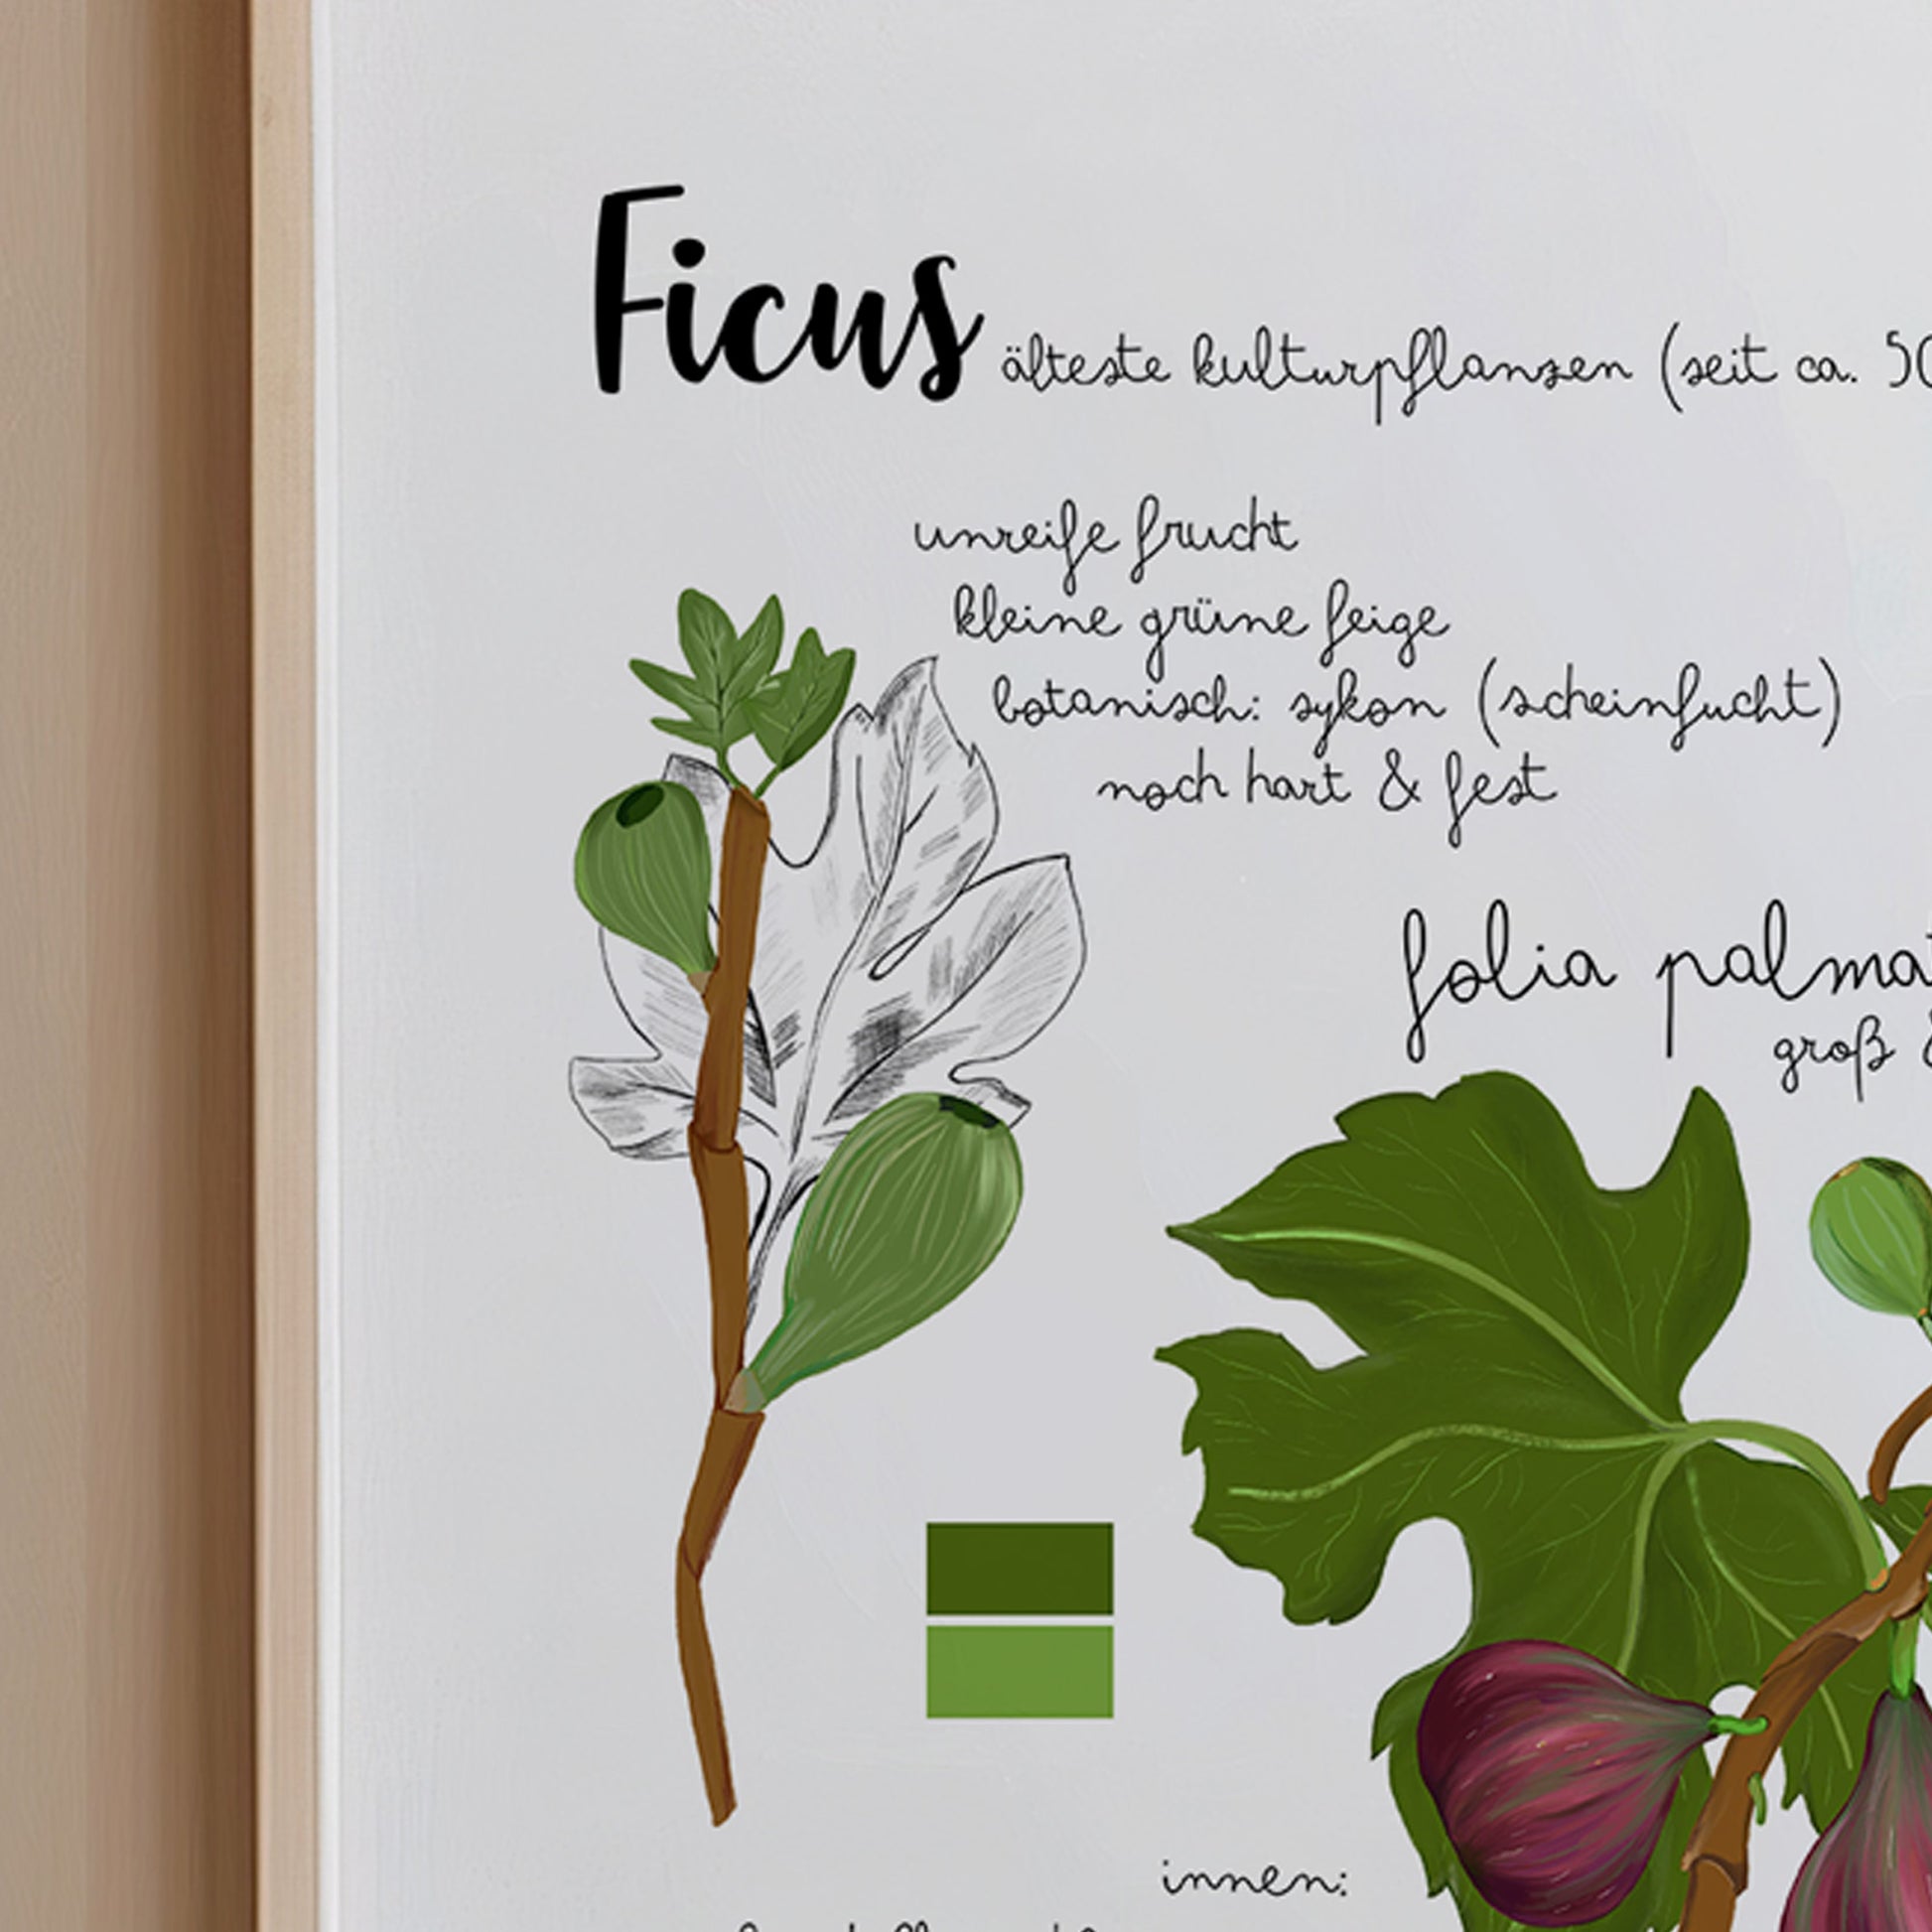 Ficus älteste kulturpflanzen (seit ca. 50
unreife frucht
kleine grüne feige
botanisch: sykon (scheinfucht)
noch hart & fest
folia palma
groß
innen: